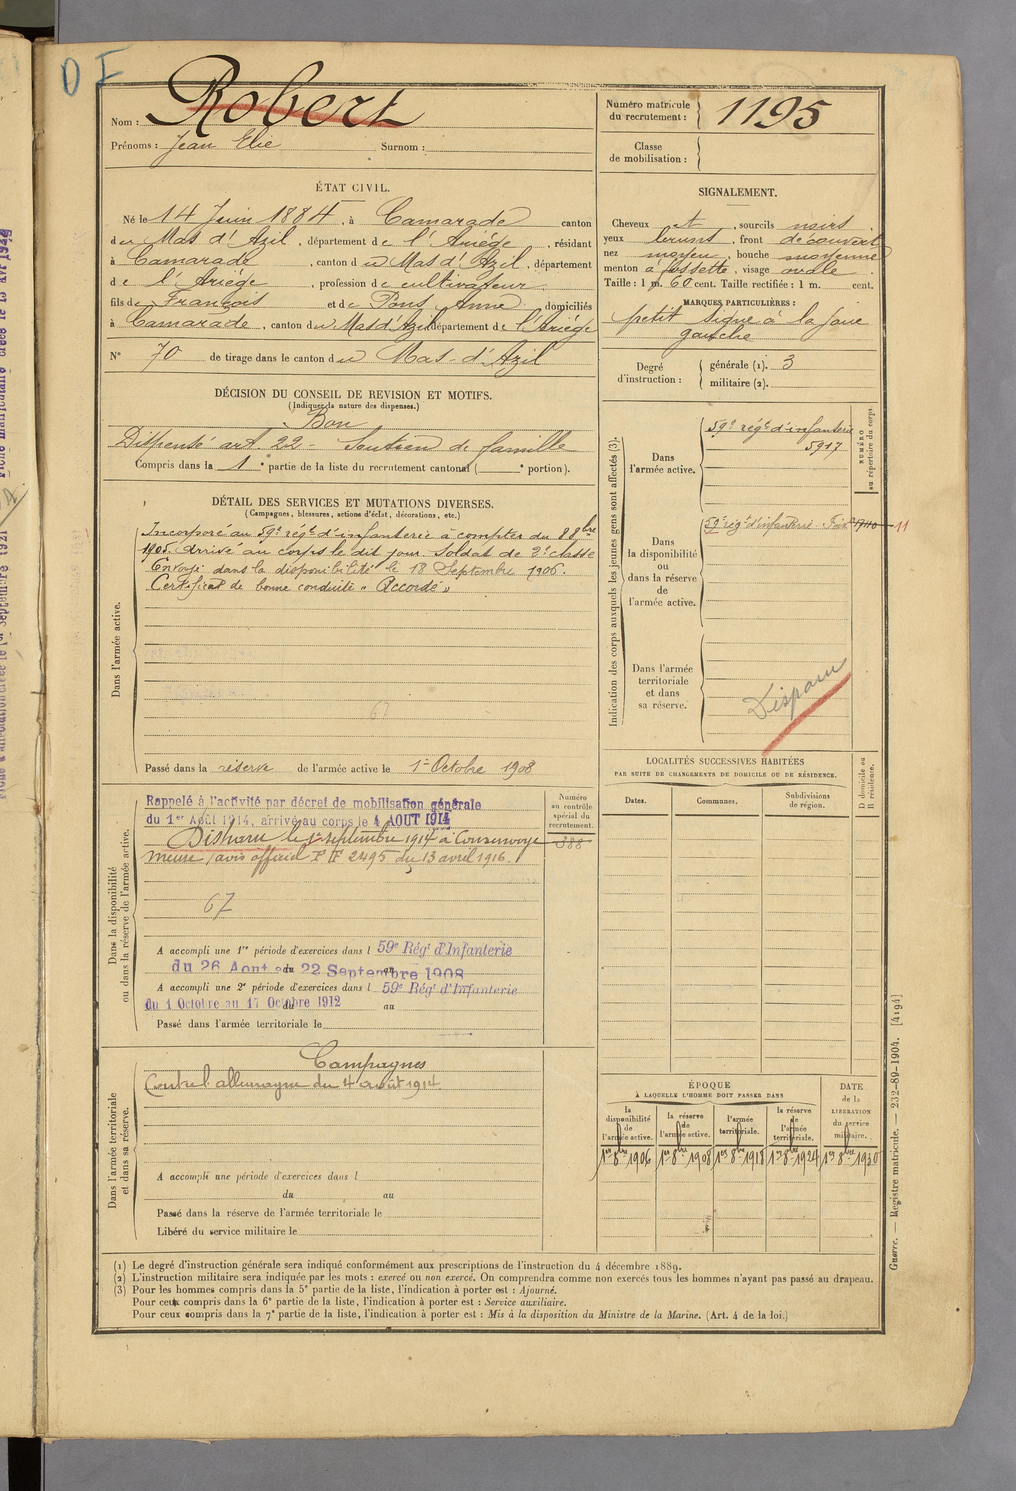 D F
Nom : Robert
Prénoms : Jean Elie Surnom :
Numéro matricule du recrutement : 1195
Classe de mobilisation :
ÉTAT CIVIL.
Né le 14 Juin 1884, à Camarade canton
du Mas d'Azil, département de l'Ariége, résidant
à Camarade, canton du Mas d'Azil, département
de l'Ariége, profession de cultivateur
fils de François et de Pons Anne domiciliés
à Camarade, canton du Mas d'Azil, département de l'Ariége
N° 70 de tirage dans le canton du Mas-d'Azil
SIGNALEMENT.
Cheveux et, sourcils noirs
yeux bruns, front découvert
nez moyen, bouche moyenne
menton à fossette, visage ovale.
Taille : 1 m. 60 cent. Taille rectifiée : 1 m. cent.
MARQUES PARTICULIÈRES :
petit signe à la joue
gauche
Degré d'instruction : générale (1). 3
militaire (2).
DÉCISION DU CONSEIL DE REVISION ET MOTIFS.
(Indiquer la nature des dispenses.)
Bon
Dispensé art. 22 - Soutien de famille
Compris dans la 1e partie de la liste du recrutement cantonal ( e portion).
DÉTAIL DES SERVICES ET MUTATIONS DIVERSES.
(Campagnes, blessures, actions d'éclat, décorations, etc.)
Dans l'armée active.
Incorporé au 59e régt d'infanterie à compter du 8 8bre
1905. Arrivé au corps le dit jour. Soldat de 2e classe
Envoyé dans la disponibilité le 18 Septembre 1906.
Certificat de bonne conduite « Accordé »
67
Passé dans la réserve de l'armée active le 1er Octobre 1908
Indication des corps auxquels les jeunes gens sont affectés (3).
NUMÉRO au répertoire du corps.
Dans l'armée active.
59e régt d'infanterie
5917
Dans la disponibilité ou dans la réserve de l'armée active.
59e régt d'infanterie. Foix 11
Dans l'armée territoriale et dans sa réserve.
Disparu
LOCALITÉS SUCCESSIVES HABITÉES
PAR SUITE DE CHANGEMENTS DE DOMICILE OU DE RÉSIDENCE.
Dates. Communes. Subdivisions de région.
D domicile ou R résidence.
Dans la disponibilité ou dans la réserve de l'armée active.
Numéro au contrôle spécial du recrutement.
388
Rappelé à l'activité par décret de mobilisation générale
du 1er Août 1914, arrivé au corps le 4 AOUT 1914
Disparu le 1er septembre 1914 à Consenvoye
Meuse, avis officiel F F 2495 du 13 avril 1916.
67
A accompli une 1re période d'exercices dans l 59e Régt d'Infanterie
du 26 Aout au 22 Septembre 1908
A accompli une 2e période d'exercices dans l 59e Régt d'Infanterie
du 1 Octobre au 17 Octobre 1912
Passé dans l'armée territoriale le
Dans l'armée territoriale et dans sa réserve.
Campagnes
Contre l'allemagne du 4 août 1914
A accompli une période d'exercices dans l
du au
Passé dans la réserve de l'armée territoriale le
Libéré du service militaire le
ÉPOQUE
À LAQUELLE L'HOMME DOIT PASSER DANS
la disponibilité de l'armée active. la réserve de l'armée active. l'armée territoriale. la réserve de l'armée territoriale. DATE de la LIBÉRATION du service militaire.
1er 8bre 1906 1er 8bre 1908 1er 8bre 1918 1er 8bre 1924 1er 8bre 1930
(1) Le degré d'instruction générale sera indiqué conformément aux prescriptions de l'instruction du 4 décembre 1889.
(2) L'instruction militaire sera indiquée par les mots : exercé ou non exercé. On comprendra comme non exercés tous les hommes n'ayant pas passé au drapeau.
(3) Pour les hommes compris dans la 5e partie de la liste, l'indication à porter est : Ajourné.
Pour ceux compris dans la 6e partie de la liste, l'indication à porter est : Service auxiliaire.
Pour ceux compris dans la 7e partie de la liste, l'indication à porter est : Mis à la disposition du Ministre de la Marine. (Art. 4 de la loi.)
Guerre. — Registre matricule. — 232-89-1904. [4194]